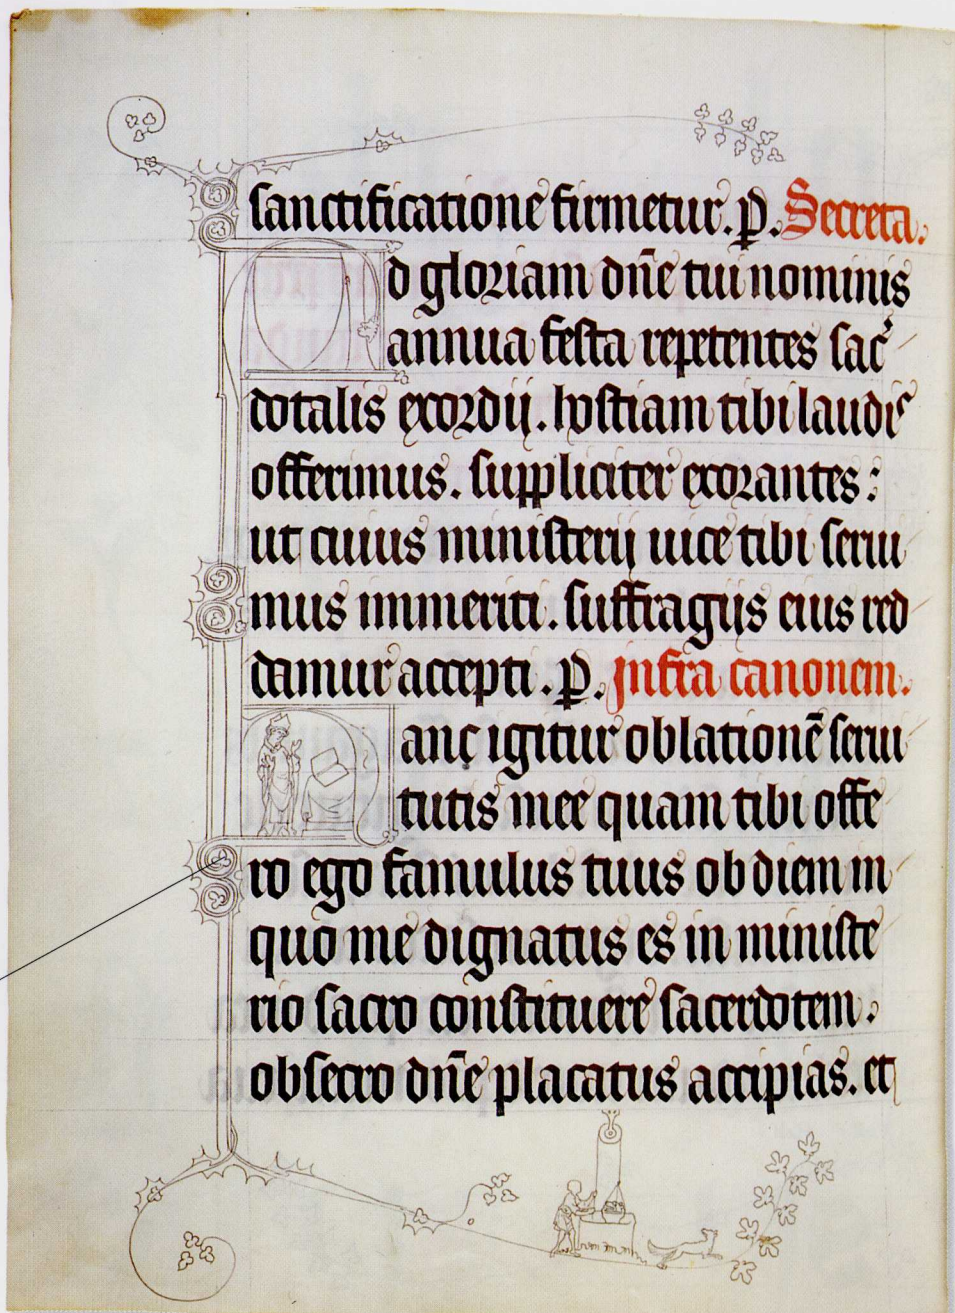 sanctificatione firmetur. p. Secreta.
d gloriam dn̄e tui nominis
annua festa repetentes sac̓
dotalis exordij. hostiam tibi laudis
offerimus. suppliciter exorantes:
ut cuius ministerij uice tibi serui
mus immeriti. suffragijs eius red
damur accepti. p. Infra canonem.
anc igitur oblationē serui
tutis mee quam tibi offe
ro ego famulus tuus ob diem in
quo me dignatus es in ministe
rio sacro constituere sacerdotem.
obsecro dn̄e placatus accipias. et